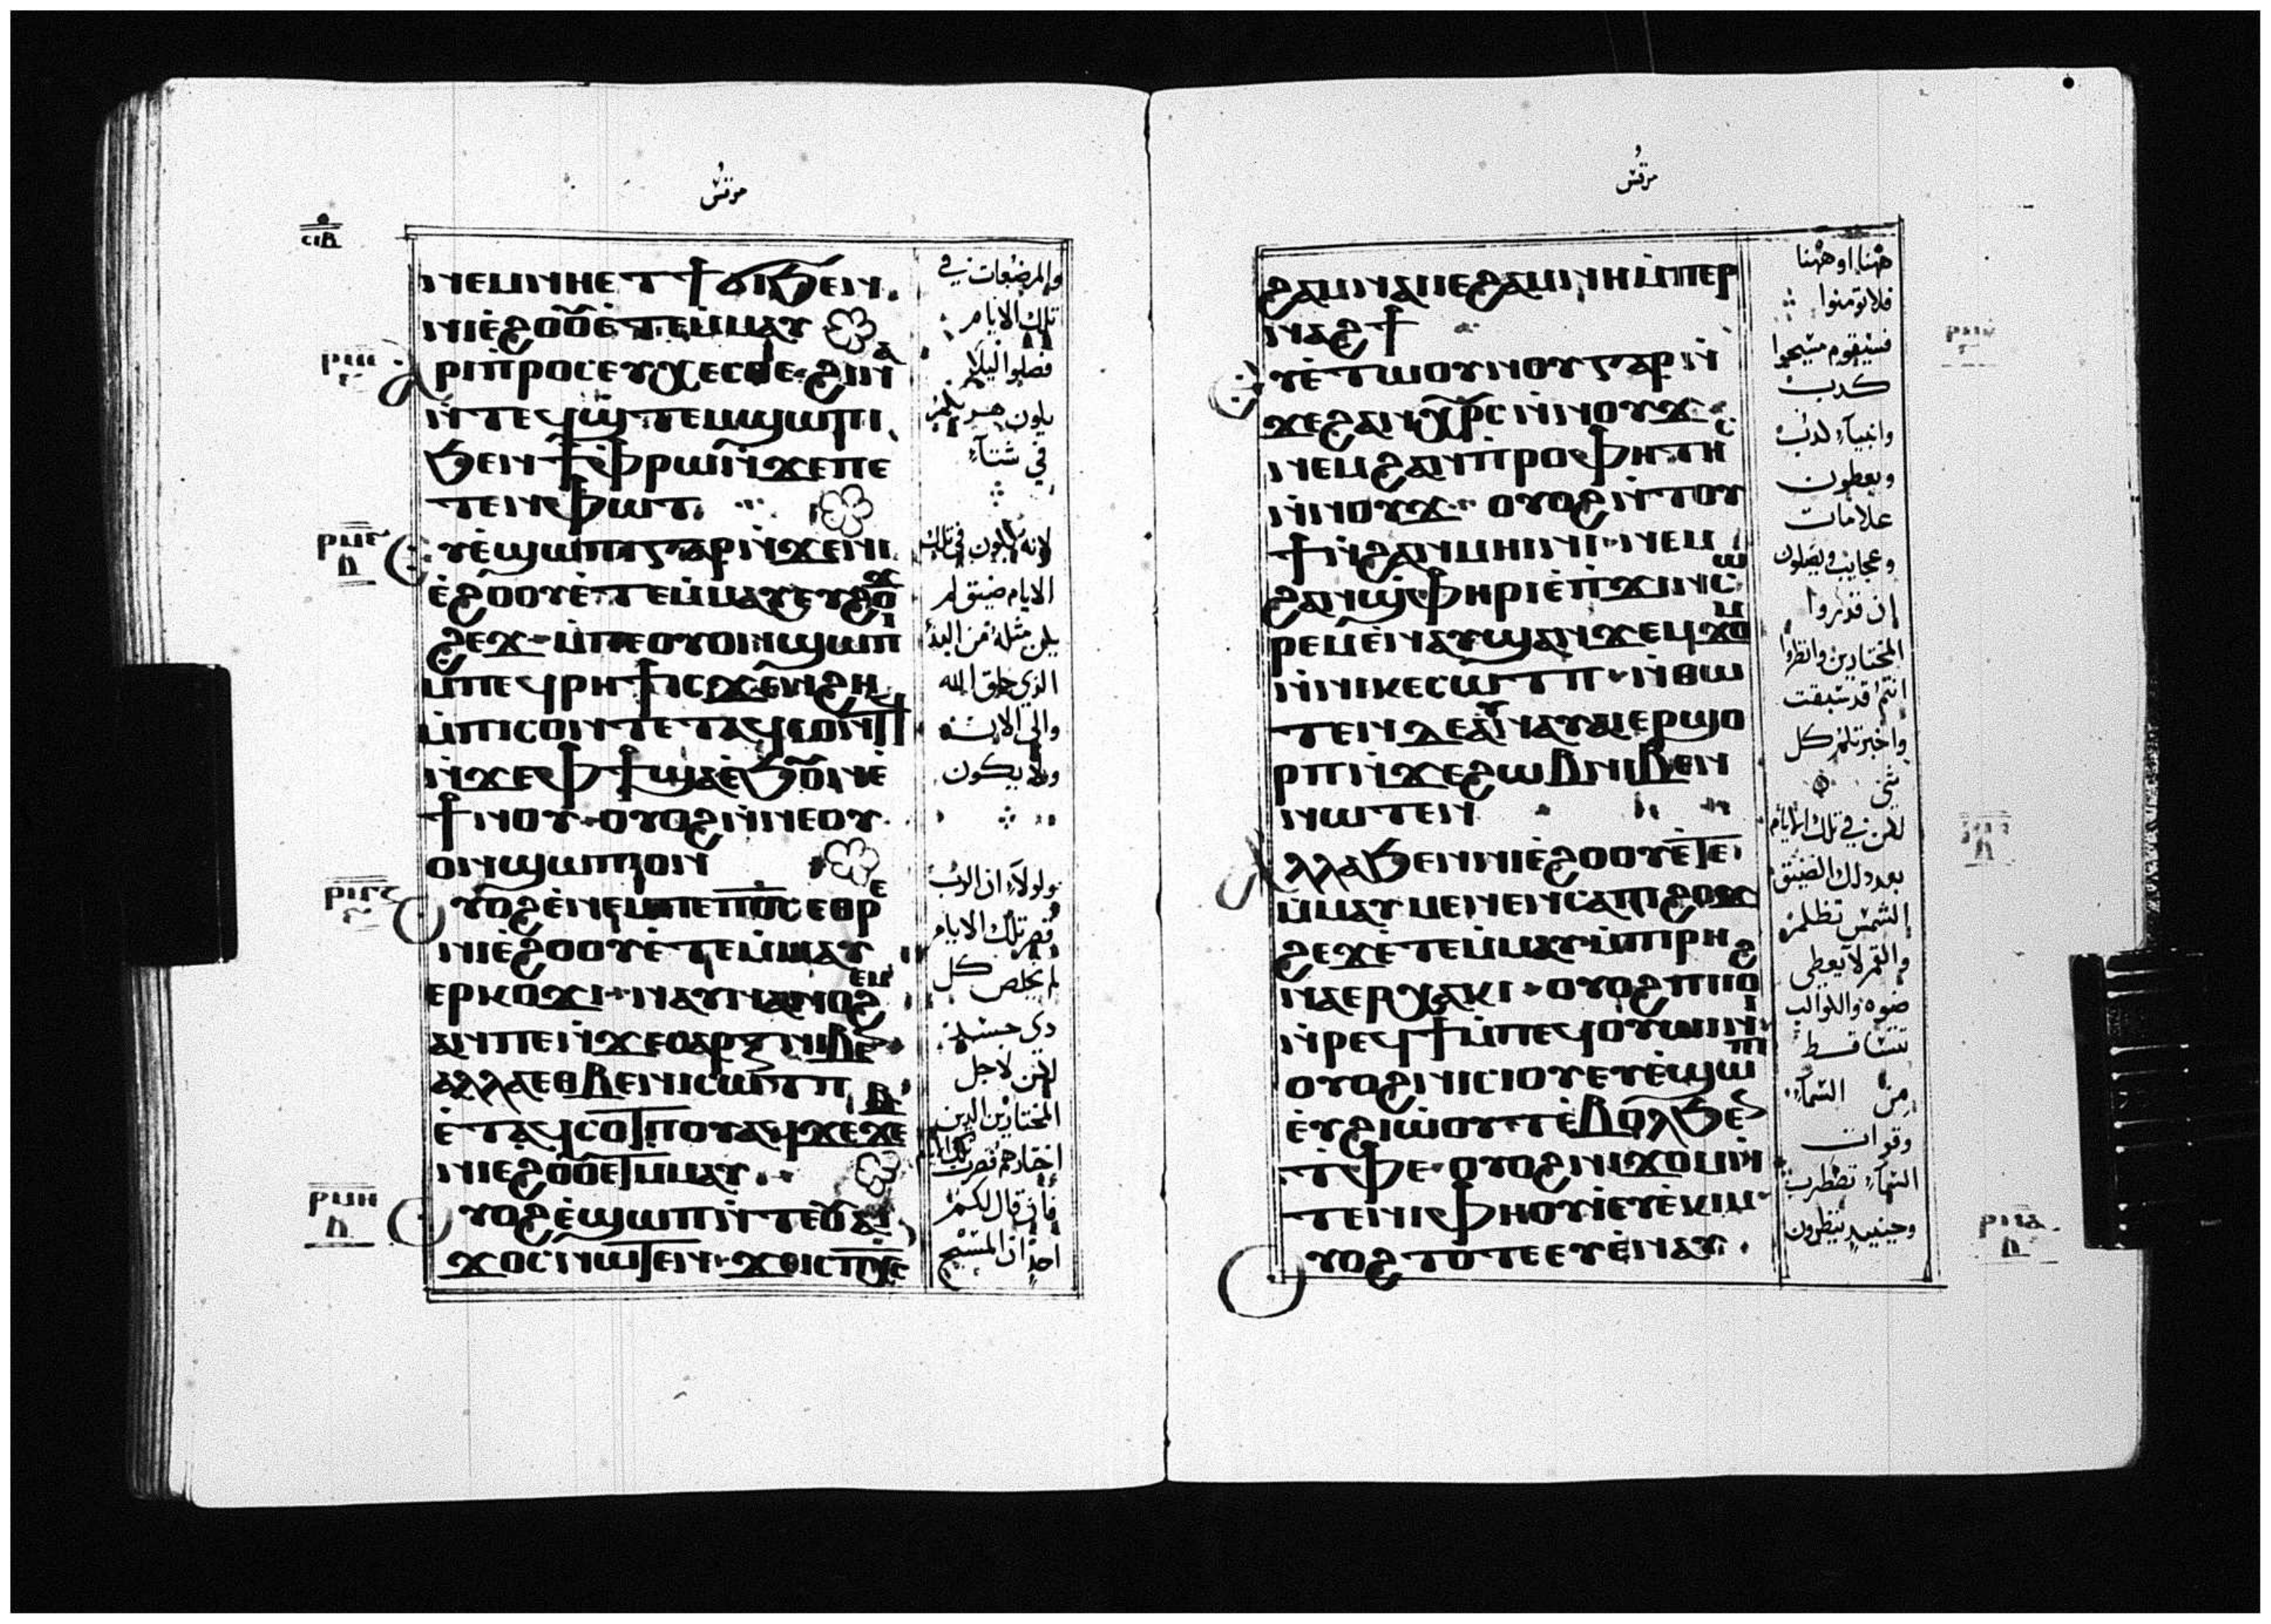 مرقس
ⲥⲓⲃ
ⲛⲉⲙⲛⲏⲉⲧϯϭⲓϧⲉⲛ
ⲛⲓⲉ̀ϩⲟⲟ̅ⲉ̀ⲧⲉⲙ̀ⲙⲁⲩ
ⲁⲣⲓⲡ̀ⲣⲟⲥⲉⲩⲭⲉⲥⲑⲉ ϩⲓⲛⲁ
ⲛ̀ⲧⲉϥϣ̀ⲧⲉⲙϣⲱⲡⲓ
ϧⲉⲛϯⲫⲣⲱⲛ̀ϫⲉⲡⲉ
ⲧⲉⲛⲫⲱⲧ
ⲟⲩⲉ̀ϣⲱⲡⲓⲅⲁⲣⲛ̀ϫⲉⲛⲓ
ⲉ̀ϩⲟⲟⲩⲉ̀ⲧⲉⲙ̀ⲙⲁⲩⲉⲩϩⲟϫ
ϩⲉϫ ⲙ̀ⲡⲉⲟⲩⲟⲛϣⲱⲡⲓ
ⲙ̀ⲡⲉϥⲣⲏϯⲓⲥϫⲉⲛϩⲏ
ⲙ̀ⲡⲓⲥⲱⲛⲧⲉⲧⲁϥⲥⲟⲛⲧϥ
ⲛ̀ϫⲉⲫϯϣⲁⲉ̀ϧⲟ̅ⲛⲉ̀
ϯⲛⲟⲩ ⲟⲩⲟϩⲛ̀ⲛⲉⲟⲩ
ⲟⲛϣⲱⲡⲓⲟⲛ
ⲟⲩⲟϩⲉ̀ⲛⲉⲙⲡⲉⲡⲟ̅ⲥ̅ⲉⲑⲣⲉ
ⲛⲓⲉ̀ϩⲟⲟⲩⲉ̀ⲧⲉⲙ̀ⲙⲁⲩ
ⲉⲣⲕⲟϫⲓ ⲛⲁⲩⲛⲁⲛⲟϩⲉⲙ
ⲁⲛⲡⲉⲛ̀ϫⲉⲥⲁⲣⲝⲛⲓⲃⲉ
ⲁⲗⲗⲁⲉⲑⲃⲉⲛⲓⲥⲱⲧⲡ
ⲉ̀ⲧⲁϥⲥⲟⲧⲡⲟⲩⲁϥϫⲉϫⲉⲃ
ⲛⲓⲉϩⲟ̅ⲟⲉⲧⲙⲙⲁⲩ
ⲟⲩⲟϩⲉ̀ϣⲱⲡⲛ̀ⲧⲉⲟⲩⲁⲓ
ϫⲟⲥⲛⲱⲧⲉⲛ ϫⲑⲓⲥⲡⲭ̅ⲥ̅
والمرضعات في
تلك الايام
فصلوا ليلا
يكون هربكم
في شتاء
لانه يكون في تلك
الايام ضيق لم
يكن مثله من البدء
الذي خلق الله
والى الان
ولا يكون
ولولا ان الرب
قصر تلك الايام
لم يخلص كل
ذي جسد
لكن لاجل
المختارين الذين
اختارهم قصر تلك الايام
فان قال لكم
احد ان المسيح
ⲣⲙⲏ
ⲏ
مرقس
ϩⲁⲙⲛⲁⲓⲉϩⲁⲙⲛⲏⲙ̀ⲡⲉⲣ
ⲛⲁϩϯ
ⲟⲩⲉ̀ⲧⲱⲟⲩⲛⲟⲩⲅⲁⲣⲛ̀
ϫⲉϩⲁⲛⲭ̅ⲣ̅ⲥ̅ⲛ̀ⲛⲟⲩϫ
ⲛⲉⲙϩⲁⲛⲡⲣⲟⲫⲏⲧⲏ
ⲛ̀ⲛⲟⲩϫ ⲟⲩⲟϩⲛ̀ⲧⲟⲩ
ϯⲛ̀ϩⲁⲛⲙⲏⲓⲛⲓ ⲛⲉⲙ
ϩⲁⲛϣ̀ⲫⲏⲣⲓⲉ̀ⲡ̀ϫⲓⲛⲥⲱ
ⲣⲉⲙⲉ̀ⲛⲁⲩϣⲁⲛϫⲉⲙϫⲟⲙ
ⲛ̀ⲛⲓⲕⲉⲥⲱⲧⲡ ⲛ̀ⲑⲱ
ⲧⲉⲛⲇⲉⲁⲛⲁⲩⲁⲓⲉⲣϣⲟ
ⲣⲡⲛ̀ϫⲉϩⲱⲃⲛⲓⲃⲉⲛ
ⲛⲱⲧⲉⲛ
ⲁⲗⲗⲁϧⲉⲛⲛⲓⲉ̀ϩⲟⲟⲩⲉ̀ⲧⲉ
ⲙ̀ⲙⲁⲩⲙⲉⲛⲉⲛⲥⲁⲡⲓϩⲟϫ
ϩⲉϫⲉ̀ⲧⲉⲙ̀ⲙⲁⲩⲙ̀ⲡⲓⲣⲏ
ⲛⲁⲉⲣⲭⲁⲕⲓ ⲟⲩⲟϩⲡⲓⲟϩ
ⲛ̀ⲣⲉϥϯⲙ̀ⲡⲉϥⲟⲩⲱⲓⲛⲓ
ⲟⲩⲟϩⲛⲓⲥⲓⲟⲩⲉⲩⲉ̀ϣⲱⲡⲓ
ⲉⲩϩⲓⲱ̀ⲟⲩⲧⲉ̀ⲃⲟⲗϧⲉ
ⲧⲫⲉ ⲟⲩⲟϩⲛⲓϫⲟⲙⲛ̀
ⲧⲉⲛⲓⲫⲏⲟⲩⲓⲉⲩⲉ̀ⲕⲓⲙ
ⲟⲩⲟϩⲧⲟⲧⲉⲉⲩⲉ̀ⲛⲁⲩ
ههنا او ههنا
فلا تومنوا
فسيقوم مسيحوا
كدب
وانبياء كدبه
ويعطون
علامات
وعجايب ويضلون
إن قدروا
المختارين وانظروا
انتم قد سبقت
واخبرتكم كل
شي
لكن في تلك الايام
بعد ذلك الضيق
الشمس تظلم
والقمر لا يعطي
ضوه والكواكب
تتساقط
من السماء
وقوات
السماء تضطرب
وحينيد ينظرون
ⲣⲛⲁ
ⲏ